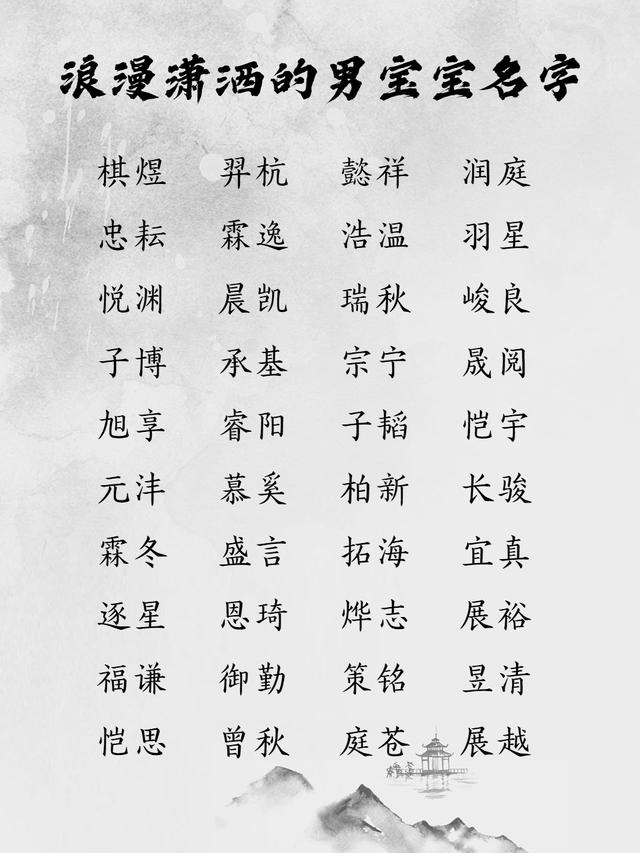 浪漫潇洒的男宝宝名字
棋煜 羿杭 懿祥 润庭
忠耘 霖逸 浩温 羽星
悦渊 晨凯 瑞秋 峻良
子博 承基 宗宁 晟阅
旭享 睿阳 子韬 恺宇
元沣 慕奚 柏新 长骏
霖冬 盛言 拓海 宜真
逐星 恩琦 烨志 展裕
福谦 御勤 策铭 昱清
恺思 曾秋 庭苍 展越